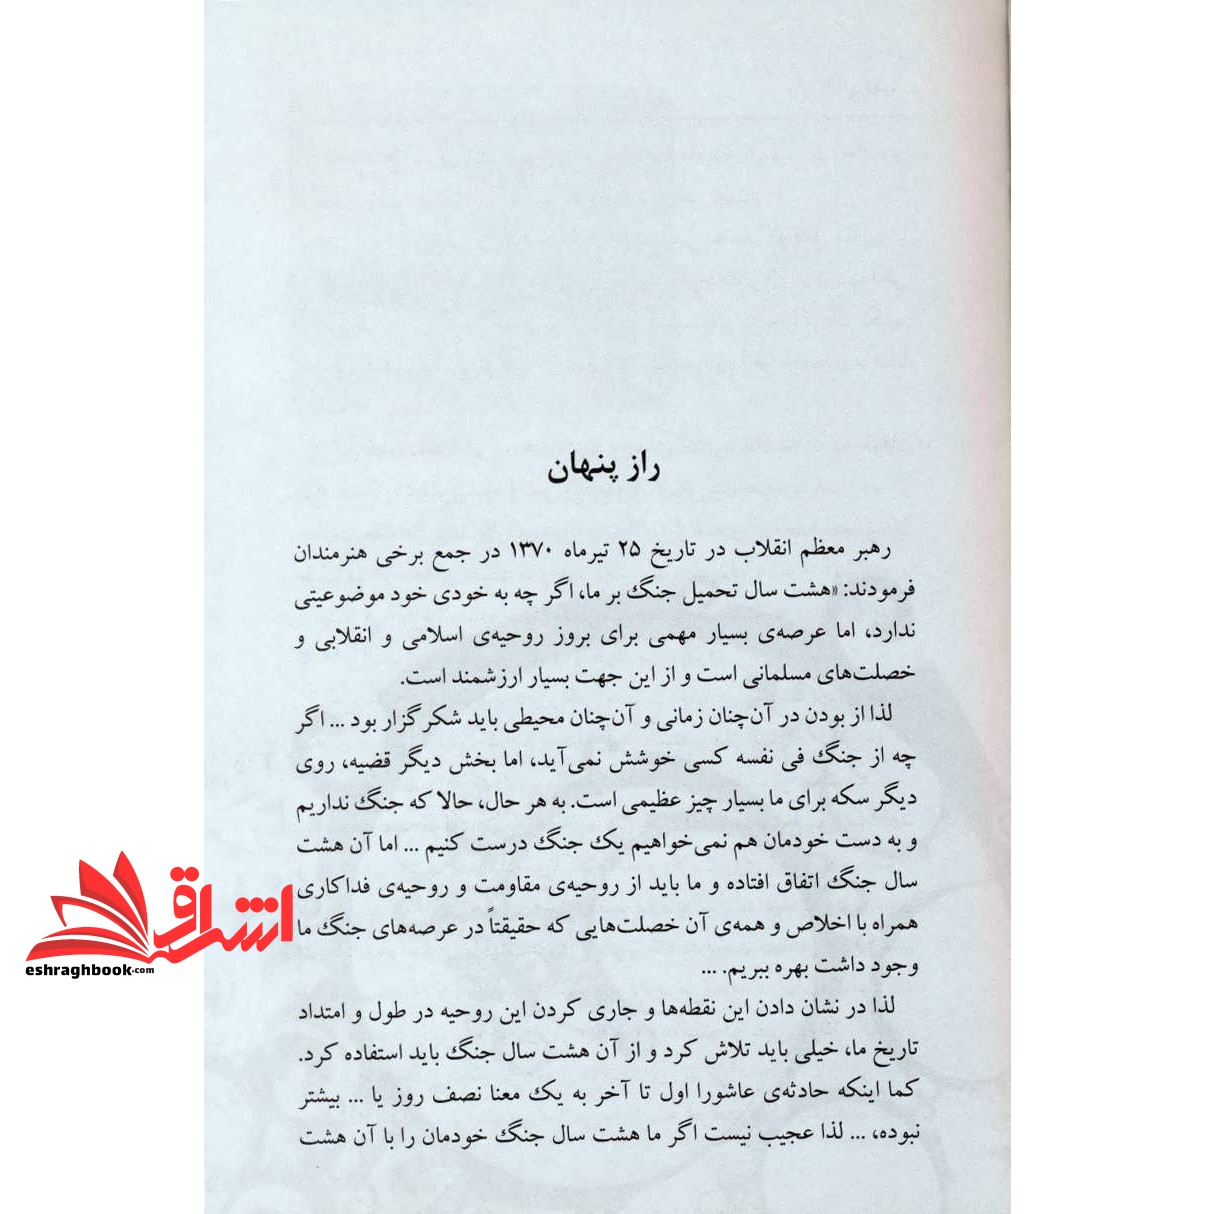 راز پنهان
رهبر معظم انقلاب در تاریخ ۲۵ تیرماه ۱۳۷۰ در جمع برخی هنرمندان
فرمودند: «هشت سال تحمیل جنگ بر ما، اگر چه به خودی خود موضوعیتی
ندارد، اما عرصه‌ی بسیار مهمی برای بروز روحیه‌ی اسلامی و انقلابی و
خصلت‌های مسلمانی است و از این جهت بسیار ارزشمند است.
لذا از بودن در آن‌چنان زمانی و آن‌چنان محیطی باید شکرگزار بود ... اگر
چه از جنگ فی نفسه کسی خوشش نمی‌آید، اما بخش دیگر قضیه، روی
دیگر سکه برای ما بسیار چیز عظیمی است. به هر حال، حالا که جنگ نداریم
و به دست خودمان هم نمی‌خواهیم یک جنگ درست کنیم ... اما آن هشت
سال جنگ اتفاق افتاده و ما باید از روحیه‌ی مقاومت و روحیه‌ی فداکاری
همراه با اخلاص و همه‌ی آن خصلت‌هایی که حقیقتاً در عرصه‌های جنگ ما
وجود داشت بهره ببریم. ...
لذا در نشان دادن این نقطه‌ها و جاری کردن این روحیه در طول و امتداد
تاریخ ما، خیلی باید تلاش کرد و از آن هشت سال جنگ باید استفاده کرد.
کما اینکه حادثه‌ی عاشورا اول تا آخر به یک معنا نصف روز یا ... بیشتر
نبوده، ... لذا عجیب نیست اگر ما هشت سال جنگ خودمان را با آن هشت
اشراق
eshraghbook.com